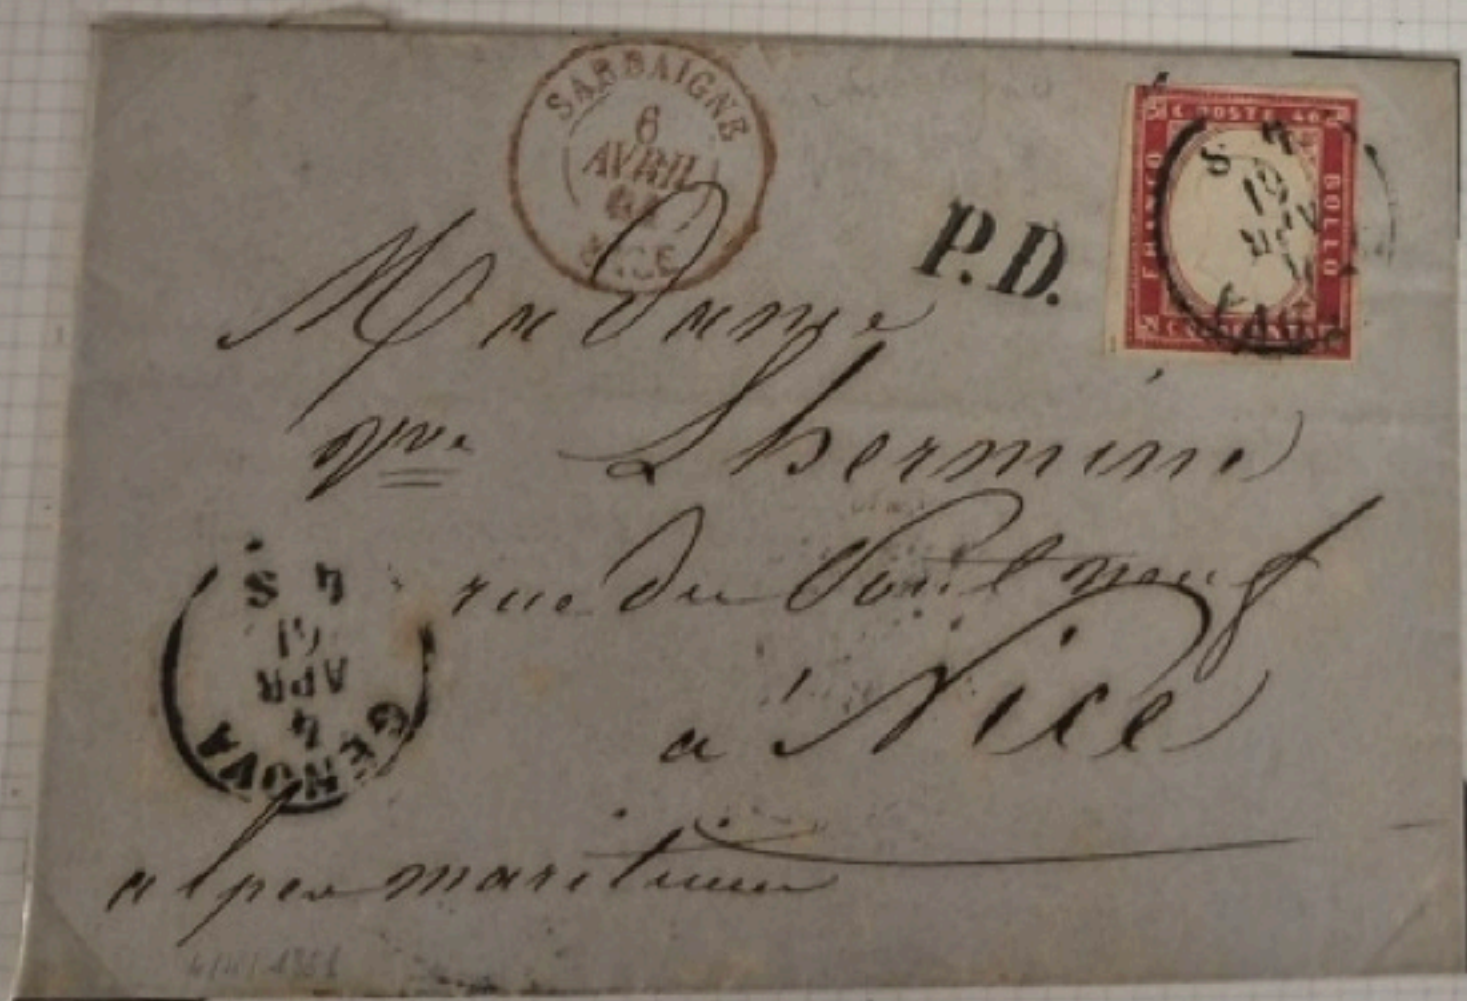 SARDAIGNE
6
AVRIL
61
NICE
P.D.
C. POSTE 40
FRANCO
BOLLO
4 S
19
Madame
Vve Lhermine
rue du Pont neuf
à Nice
alpes maritimes
4 S
61
APR
4
GENOVA
4/4/1861